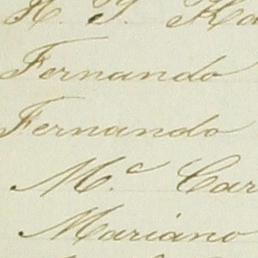 H. T.
Fernando
Fernando
Mc. Car
Mariano